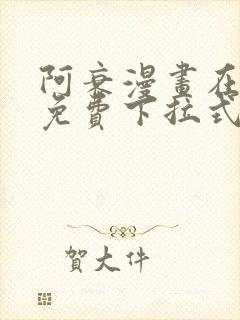 阿衰漫畫在
免費下拉式
賀大件